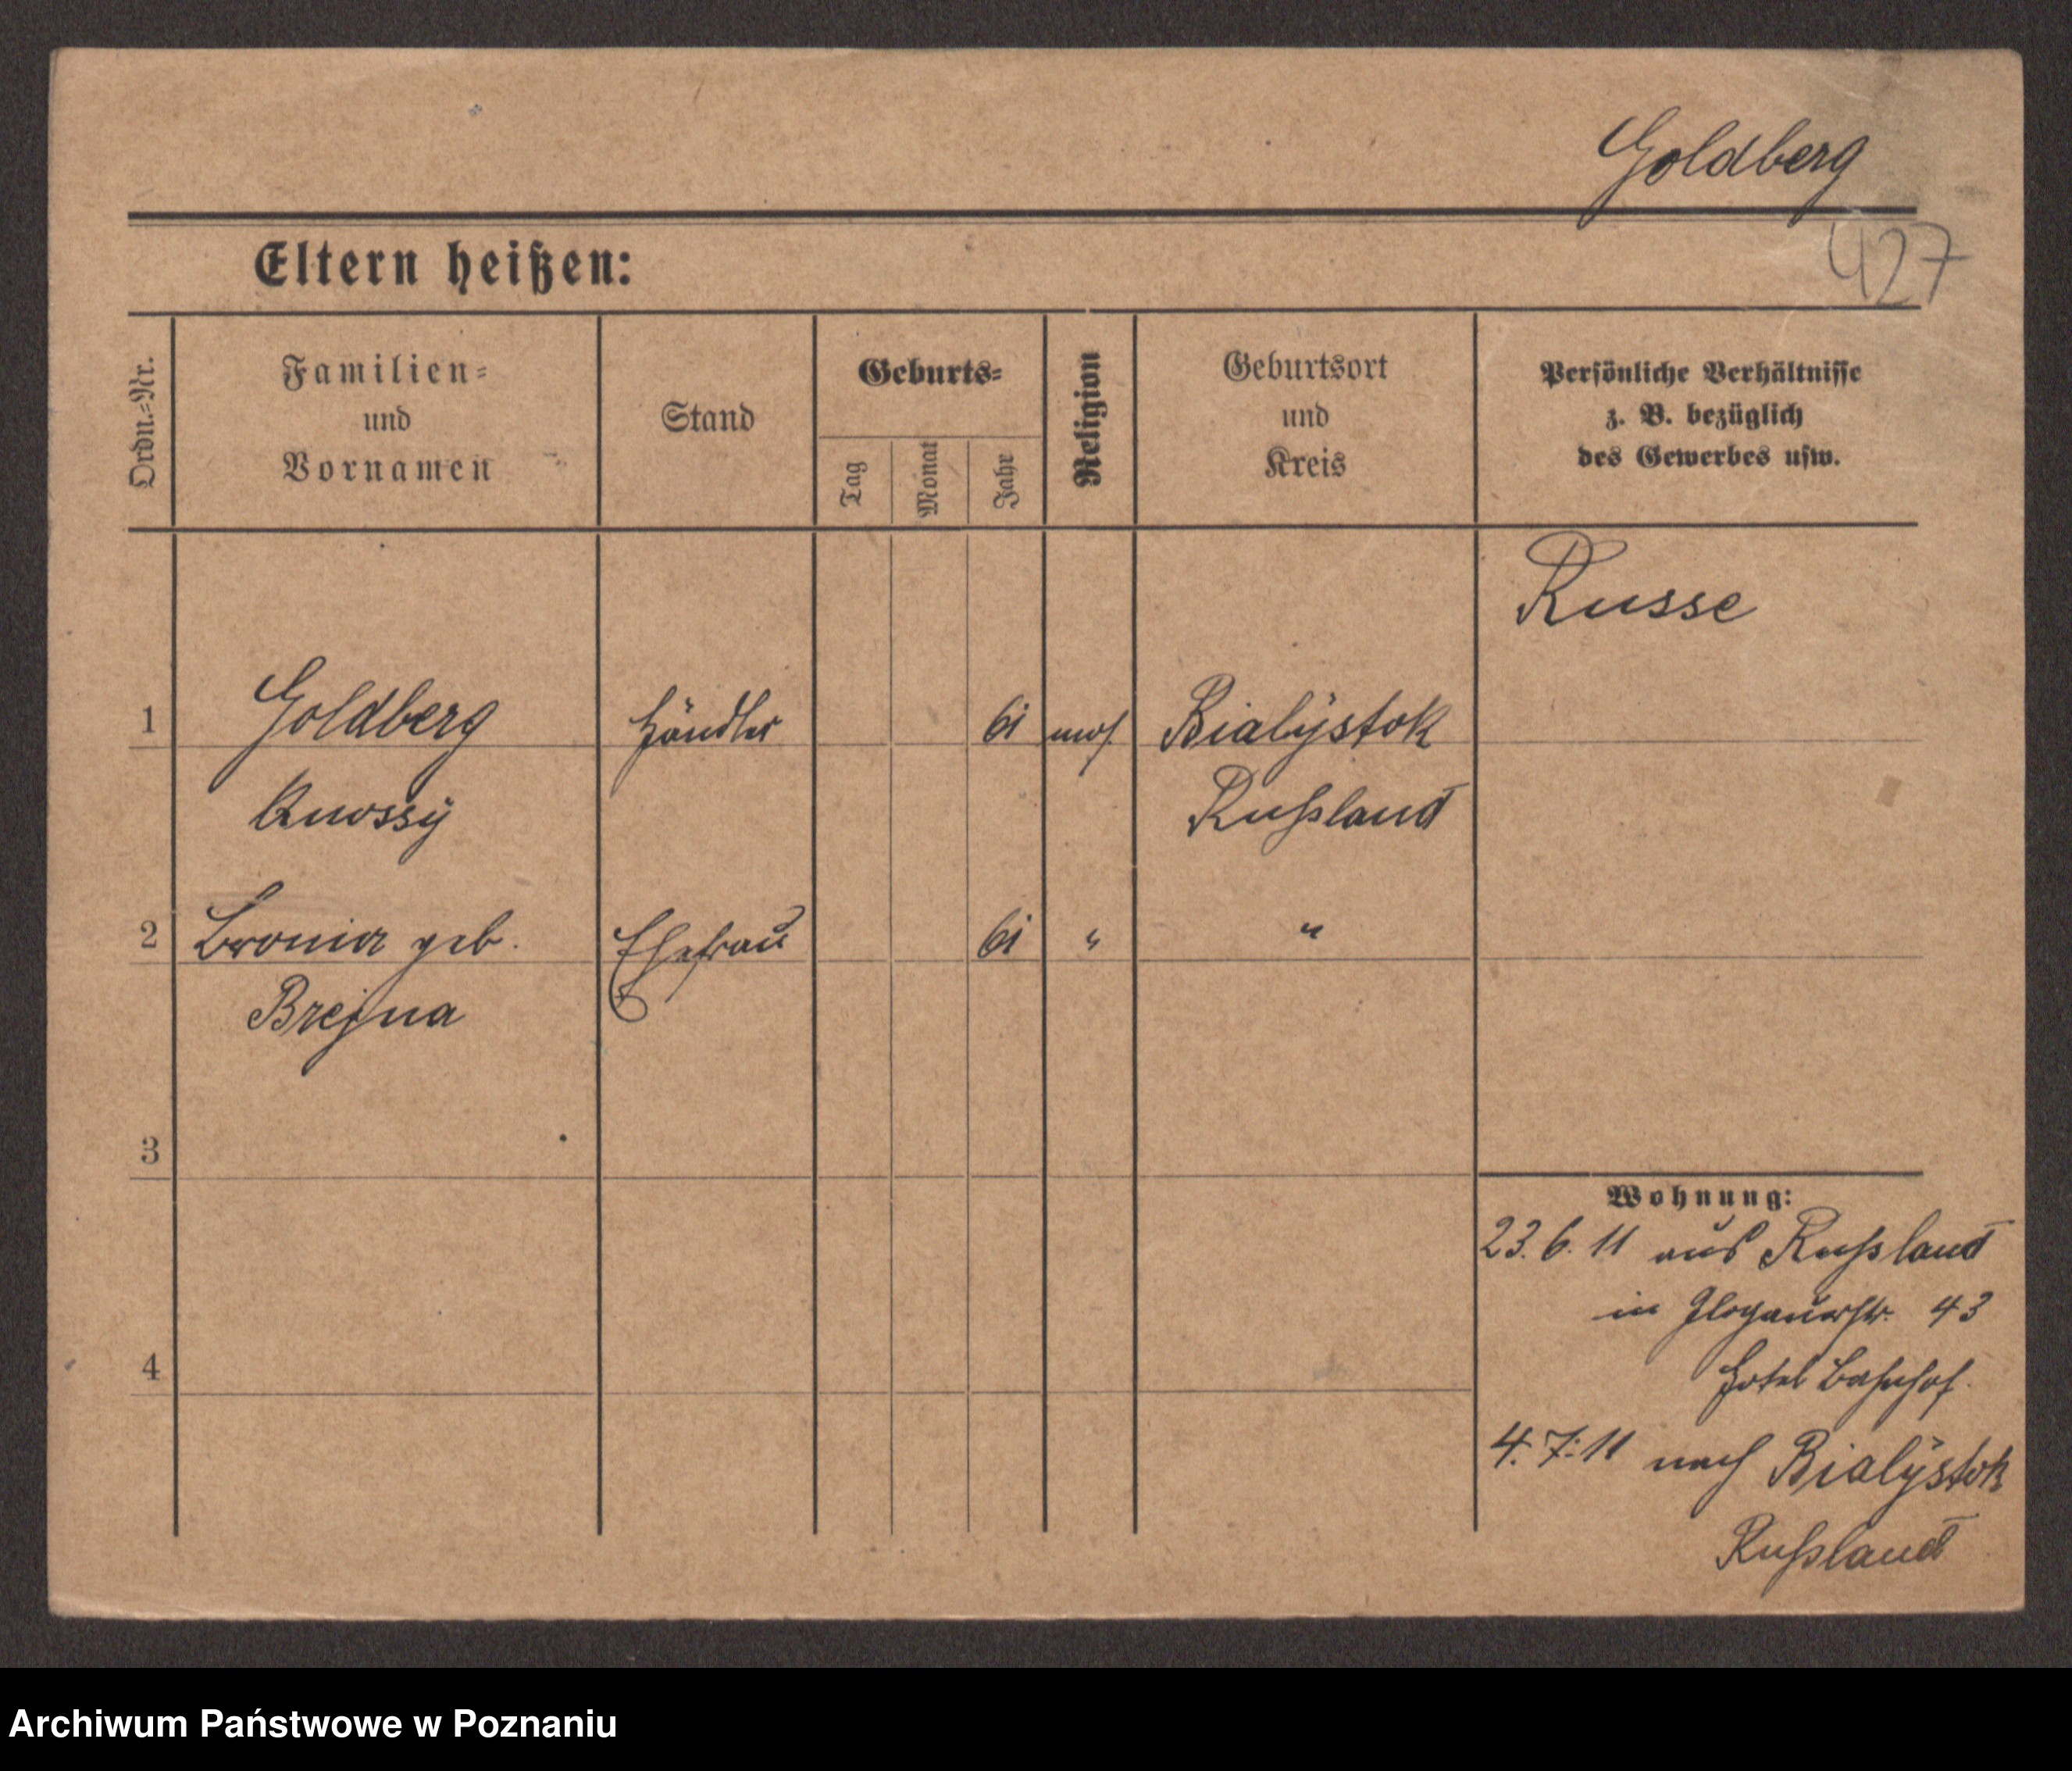 Goldberg
427
Eltern heißen:
Ordn.-Nr.
Familien-
und
Vornamen
Stand
Geburts-
Tag
Monat
Jahr
Religion
Geburtsort
und
Kreis
Persönliche Verhältnisse
z. B. bezüglich
des Gewerbes usw.
Russe
1 Goldberg Händler 61 mos. Bialÿstok
Rußland
2 Bronia geb. Ehefrau 61 " "
Brejna
3
4
Wohnung:
23. 6. 11 aus Rußland
in Glogauerstr. 43
Hotel Bahnhof.
4. 7. 11 nach Bialÿstok
Rußland
Archiwum Państwowe w Poznaniu